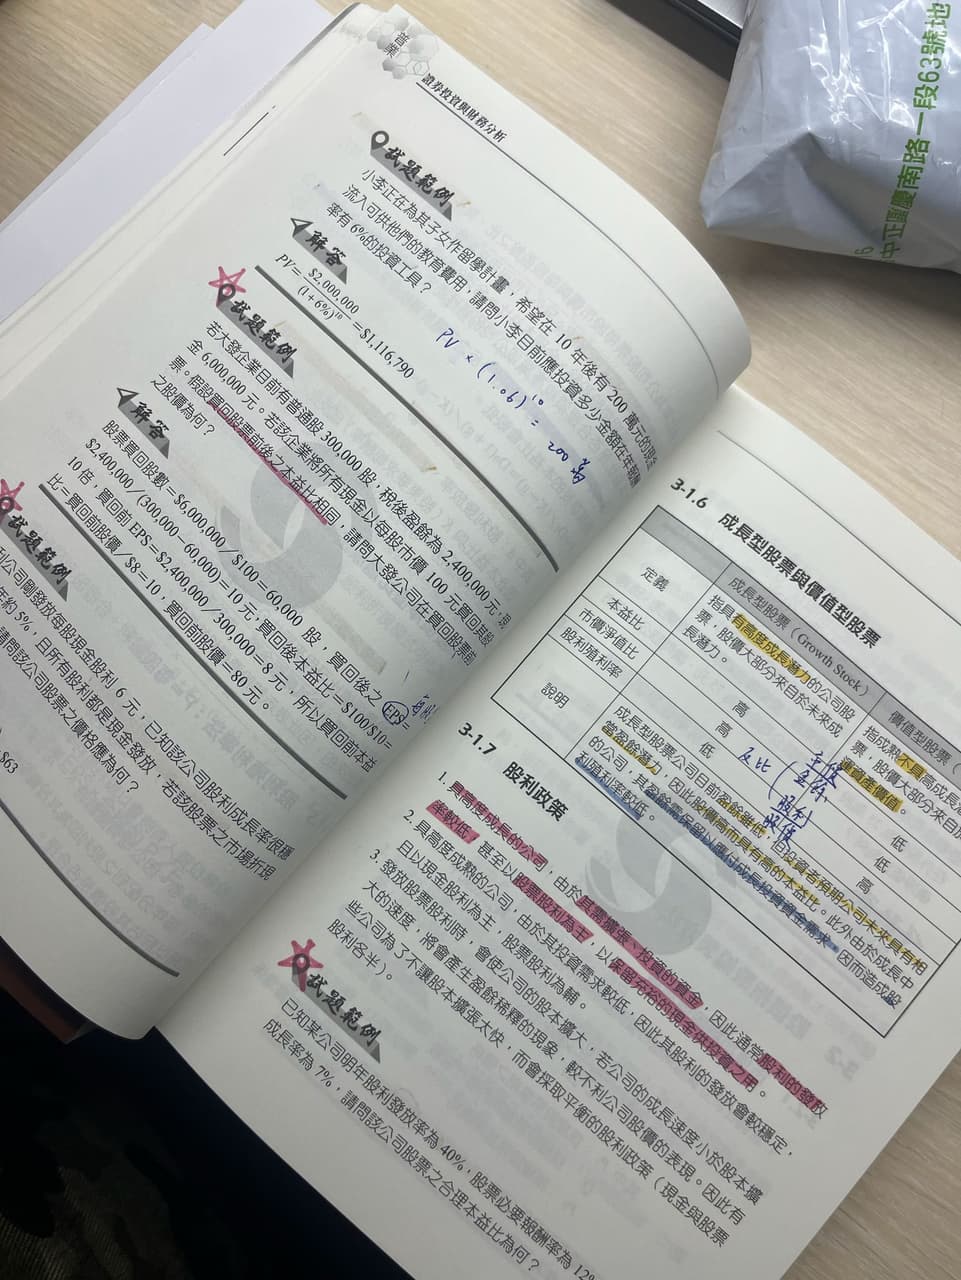 證券投資與財務分析
試題範例
小李正在為其子女作留學計畫,希望在 10 年後有 200 萬元的現金
流入可供他們的教育費用,請問小李目前應投資多少金額在年報酬
率有 6%的投資工具?
解答
PV = $2,000,000 / (1+6%)^10 = $1,116,790
PV × (1.06)^10 = 200 萬
試題範例
若大發企業目前有普通股 300,000 股,稅後盈餘為 2,400,000 元,現
金 6,000,000 元。若該企業將所有現金以每股市價 100 元買回其股
票。假設買回股票前後之本益比相同,請問大發公司在買回股票前
之股價為何?
解答
股票買回股數=$6,000,000/$100=60,000 股,買回後之 EPS=
$2,400,000/(300,000−60,000)=10 元,買回後本益比=$100/$10=
10 倍,買回前 EPS=$2,400,000/300,000=8 元,所以買回前本益
比=買回前股價/$8=10,買回前股價=80 元。
試題範例
利公司剛發放每股現金股利 6 元,已知該公司股利成長率很穩
年約 5%,且所有股利都是現金發放,若該股票之市場折現
請問該公司股票之價格應為何?
$63
3-1.6 成長型股票與價值型股票
成長型股票(Growth Stock)
價值型股票(
定義
指具有高度成長潛力的公司股
票,股價大部分來自於未來成
長潛力。
指成熟不具高成長潛
票,股價大部分來自
資產價值。
本益比
高
低
市價淨值比
高
低
股利殖利率
低
高
反比
股利
股價
說明
成長型股票公司目前盈餘雖低,但投資者預期公司未來具有相
當盈餘潛力,因此股價高而具有高的本益比。此外由於成長中
的公司,其盈餘需保留以應付成長投資資金需求,因而造成股
利殖利率較低。
3-1.7 股利政策
1. 具高度成長的公司,由於亟需擴張、投資的資金,因此通常股利的發放
率較低,甚至以股票股利為主,以保留充裕的現金供投資之用。
2. 具高度成熟的公司,由於其投資需求較低,因此其股利的發放會較穩定,
且以現金股利為主,股票股利為輔。
3. 發放股票股利時,會使公司的股本擴大,若公司的成長速度小於股本擴
大的速度,將會產生盈餘稀釋的現象,較不利公司股價的表現。因此有
些公司為了不讓股本擴張太快,而會採取平衡的股利政策(現金與股票
股利各半)。
試題範例
已知某公司明年股利發放率為 40%,股票必要報酬率為 12%
成長率為 7%,請問該公司股票之合理本益比為何?
中正區重慶南路一段63號地